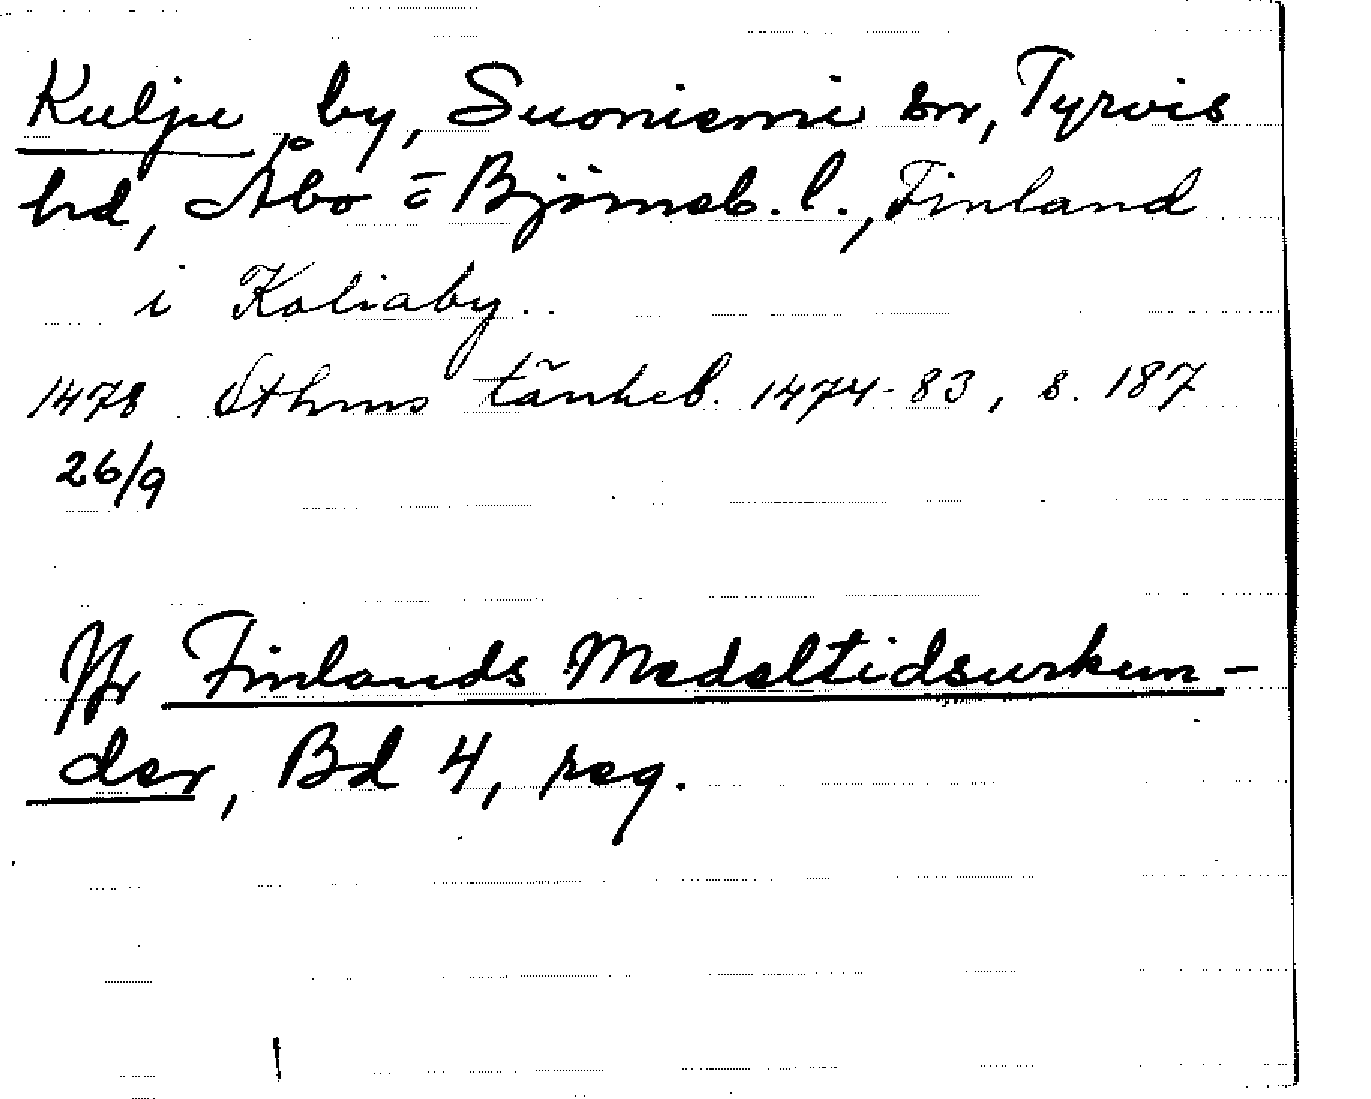 Kulju by, Suoniemi sn, Tyrvis
hd, Åbo o Björneb. l., Finland
i Koliaby..
1478 Sthms tänkeb. 1474-83, s. 187
26/9
Jfr Finlands Medeltidsurkun-
der, Bd 4, reg.